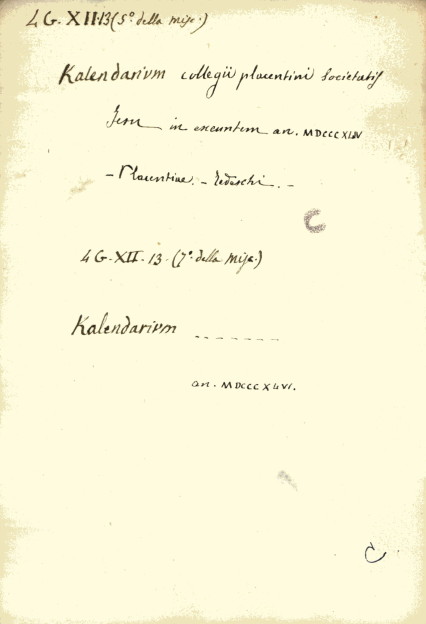 4 G. XII.13 (5º della misc.)
Kalendarivm collegii placentini Societatis
Jesu in exeuntem an. MDCCCXLIV
- Placentiae. - Tedeschi. -
C
4 G. XII. 13. (7º della Misc.)
Kalendarivm - - - - - - -
an. MDCCCXLVI.
C